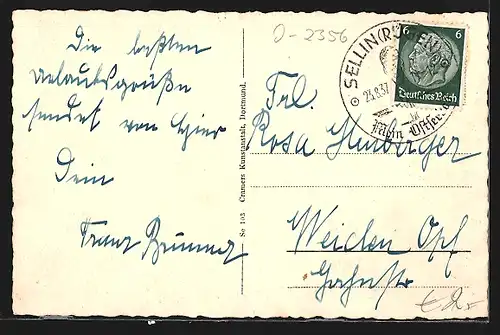 Die besten
Urlaubsgrüße
sendet von hier
Dein
Franz
O-2356
SELLIN (RÜGEN)
23.8.37
Mein Ostsee
6 6
Deutsches Reich
Frl.
Rosa
Weiden Opf
Se 103 Cramers Kunstanstalt, Dortmund.